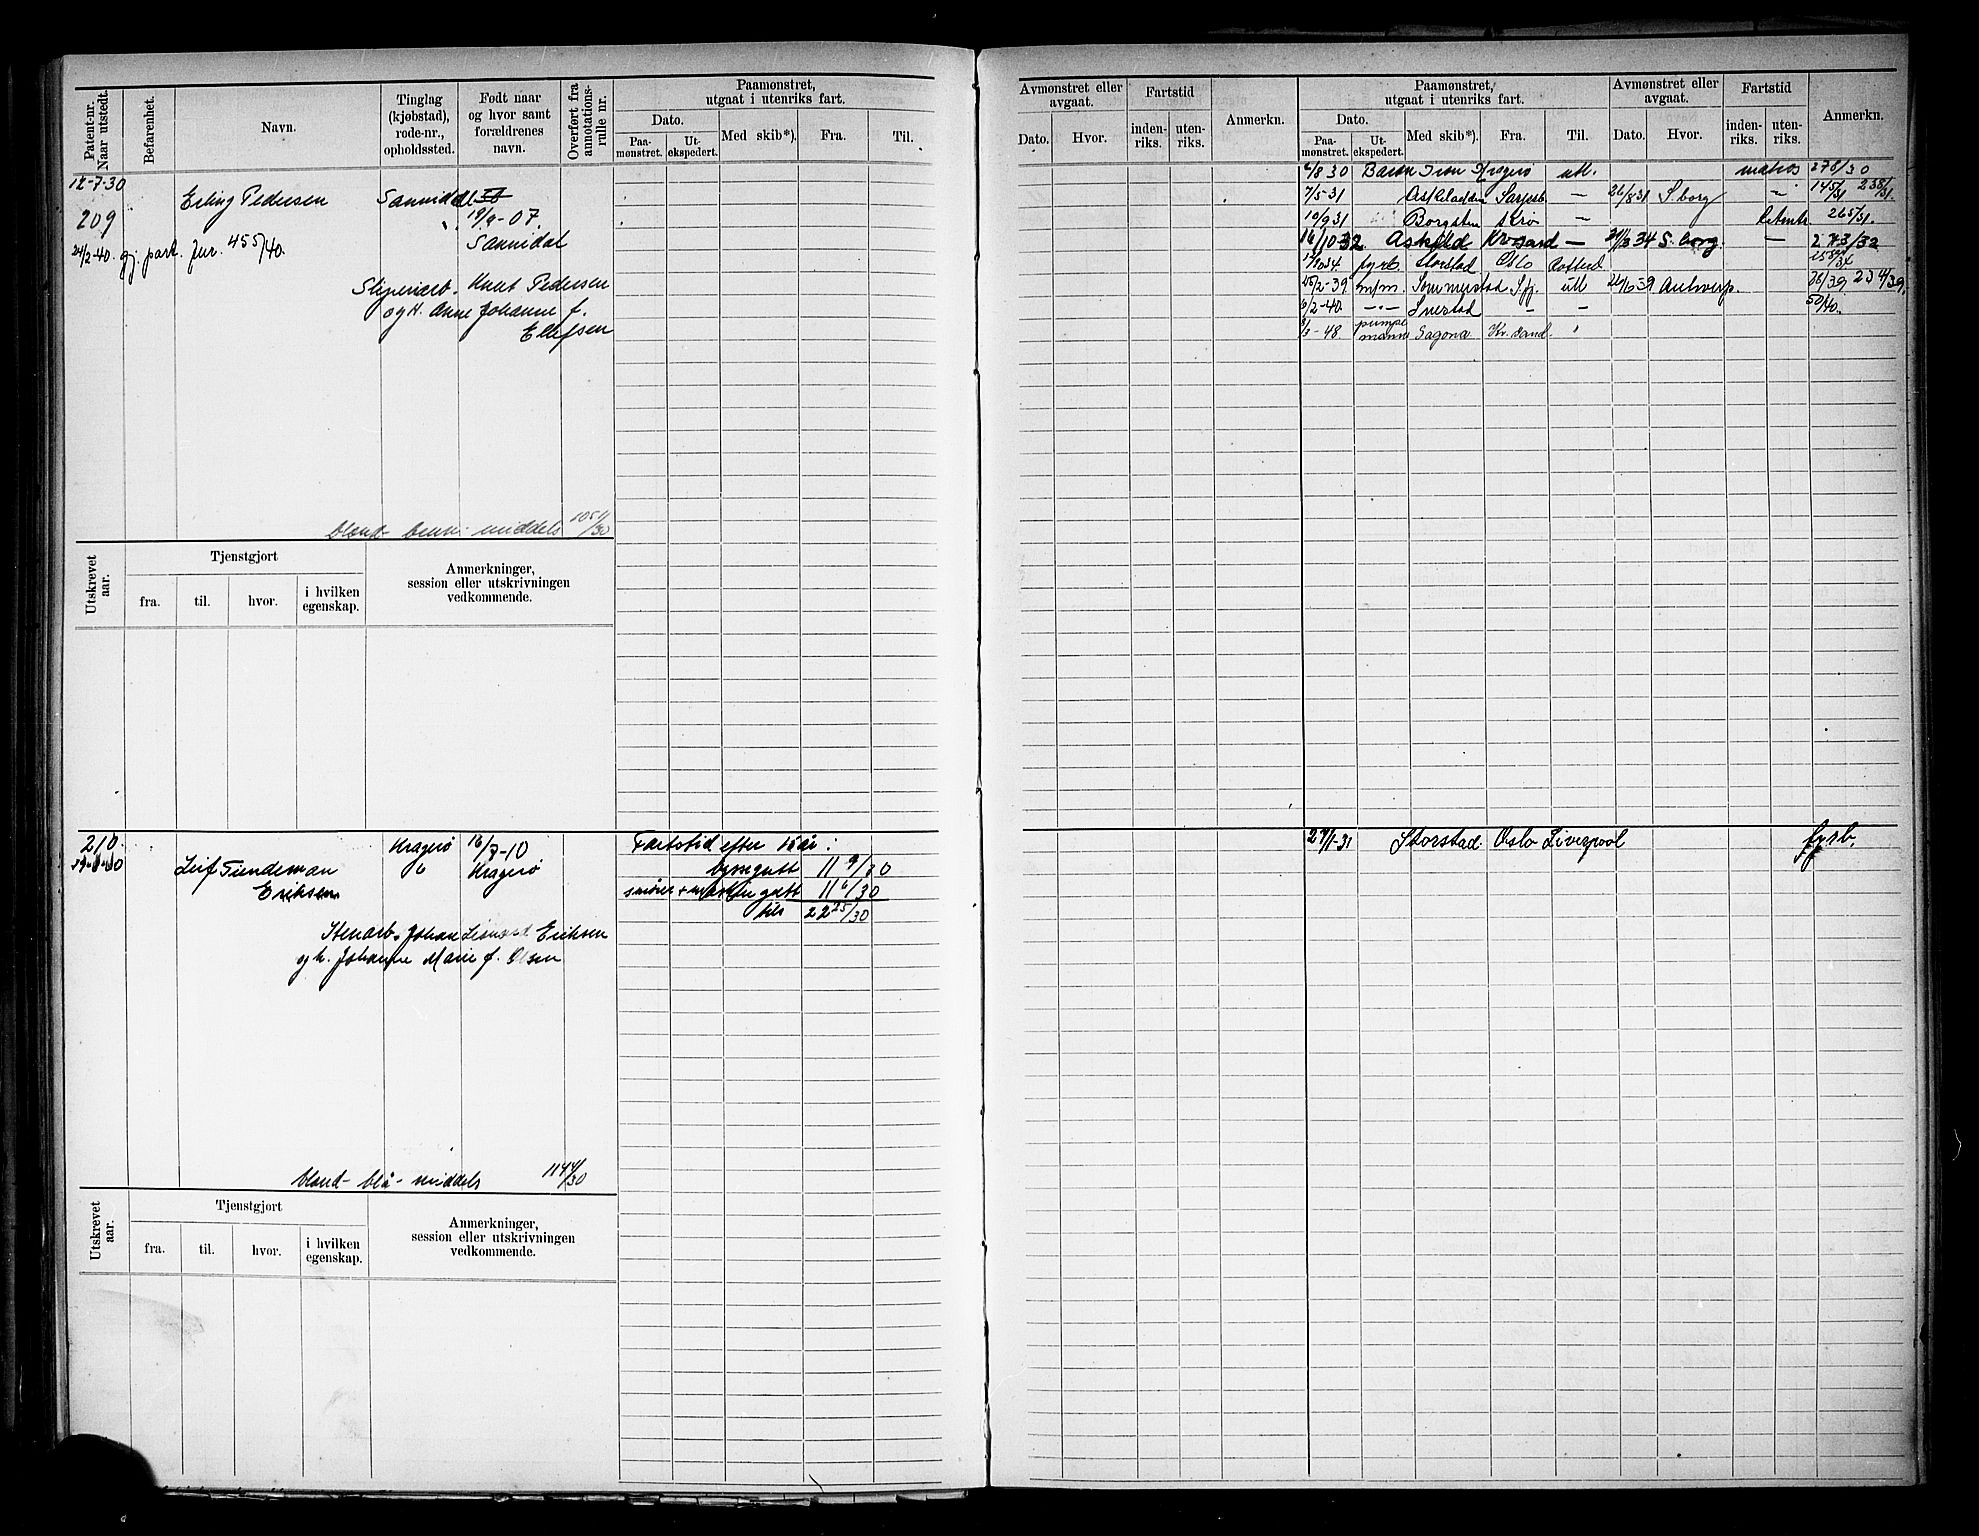 Patent-nr. Naar utstedt.
Befarenhet.
Navn.
Tinglag (kjøbstad), rode-nr., opholdssted.
Født naar og hvor samt forældrenes navn.
Overført fra annotations-rulle nr.
Paamønstret, utgaat i utenriks fart.
Dato.
Paa-mønstret.
Ut-ekspedert.
Med skib*).
Fra.
Til.
12-7-30
209
24/2-40. gj. part. jur. 455/40.
Erling Pedersen
Sannidal
19/9-07.
Sannidal
Knut Pedersen
og H. Anne Johanne f.
Ellefsen
blond- middels
Utskrevet aar.
Tjenstgjort
fra.
til.
hvor.
i hvilken egenskap.
Anmerkninger, session eller utskrivningen vedkommende.
210
Leif
Eriksen
Kragerø
16/7-10
Kragerø
Johan Eriksen
og h. Johanne Marie f. Olsen
Fartstid efter 15 år:
11 9/30
11 6/30
tils 22 25/30
blond- blå- middels 1144/30
Utskrevet aar.
Tjenstgjort
fra.
til.
hvor.
i hvilken egenskap.
Anmerkninger, session eller utskrivningen vedkommende.
Avmønstret eller avgaat.
Dato.
Hvor.
Fartstid
inden-riks.
uten-riks.
Anmerkn.
Paamønstret, utgaat i utenriks fart.
Dato.
Paa-mønstret.
Ut-ekspedert.
Med skib*).
Fra.
Til.
Avmønstret eller avgaat.
Dato.
Hvor.
Fartstid
inden-riks.
uten-riks.
Anmerkn.
6/8 30 Kragerø utl. matros 278/30
7/5-31 Askeladden Sarpsb — 26/8 31 S borg 145/31 238/31.
10/9 31 Borgsten Krø — 265/31.
16/10-32 Askild — S. borg. — 273/32
fyrb. Storstad Oslo Rotterd
25/2-39 m/m. Sommerstad Sfj. utl Antwerp. 36/39 234/39.
6/2-40 — Snestad — — 50/40.
8/3-48. pumpe mann Sagona Kr. sand.
27/1-31 Storstad Oslo Liverpool fyrb.